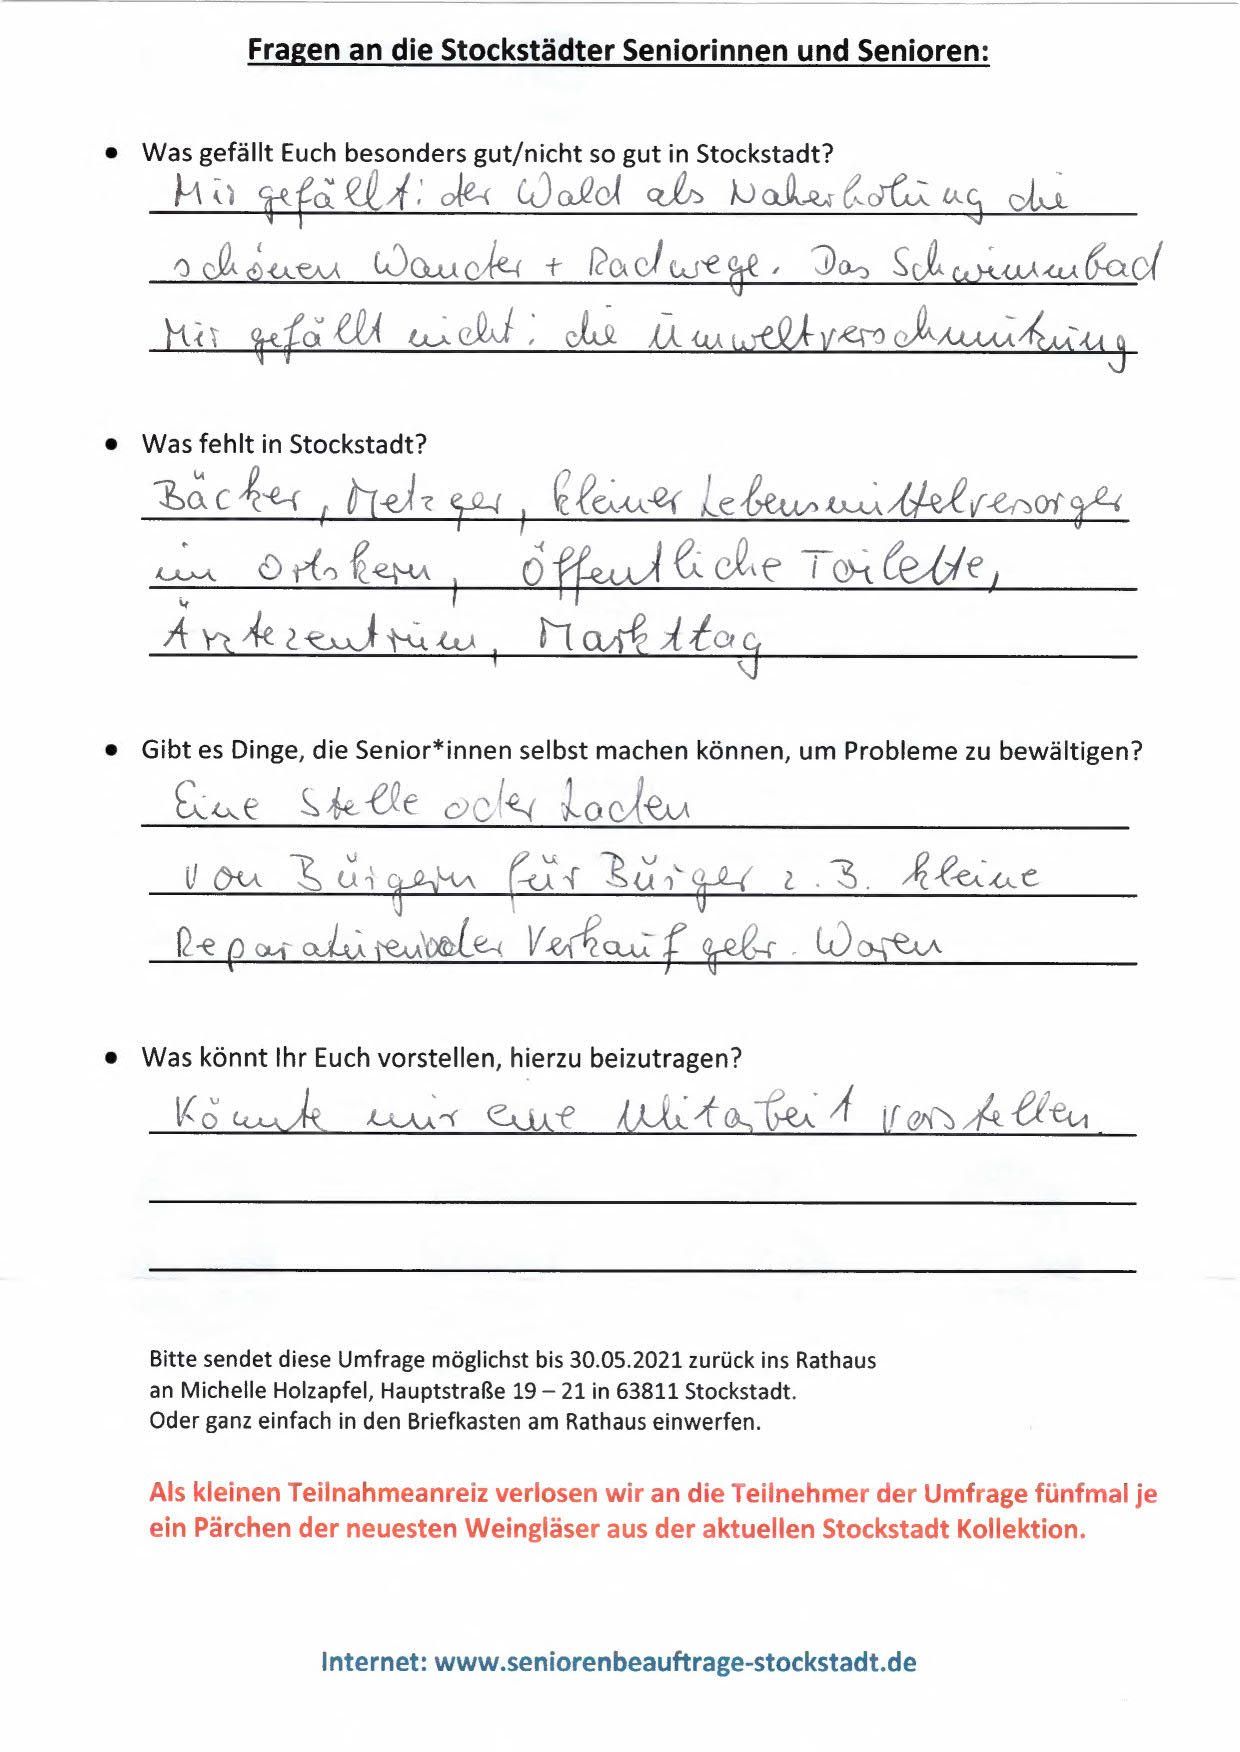 Fragen an die Stockstädter Seniorinnen und Senioren:
• Was gefällt Euch besonders gut/nicht so gut in Stockstadt?
Mir gefällt: der Wald als Naherholung die
schönen Wander + Radwege. Das Schwimmbad
Mir gefällt nicht: die Umweltverschmutzung
• Was fehlt in Stockstadt?
Bäcker, Metzger, kleiner Lebensmittelversorger
im Ortskern, öffentliche Toilette,
Ärztezentrum, Markttag
• Gibt es Dinge, die Senior*innen selbst machen können, um Probleme zu bewältigen?
Eine Stelle oder Laden
von Bürgern für Bürger z.B. kleine
Reparaturen oder Verkauf gebr. Waren
• Was könnt Ihr Euch vorstellen, hierzu beizutragen?
Könnte mir eine Mitarbeit vorstellen.
Bitte sendet diese Umfrage möglichst bis 30.05.2021 zurück ins Rathaus
an Michelle Holzapfel, Hauptstraße 19 – 21 in 63811 Stockstadt.
Oder ganz einfach in den Briefkasten am Rathaus einwerfen.
Als kleinen Teilnahmeanreiz verlosen wir an die Teilnehmer der Umfrage fünfmal je
ein Pärchen der neuesten Weingläser aus der aktuellen Stockstadt Kollektion.
Internet: www.seniorenbeauftrage-stockstadt.de